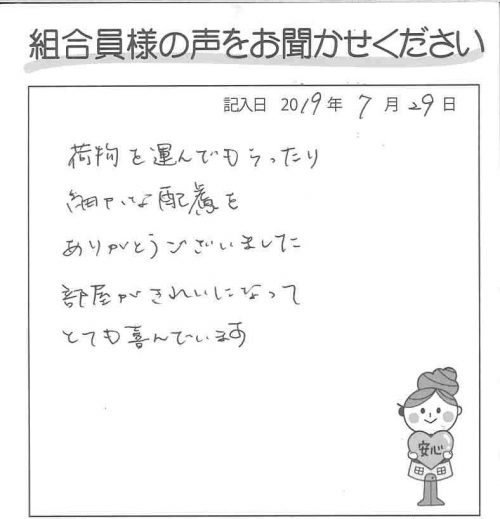 組合員様の声をお聞かせください
記入日 2019年 7月29日
荷物を運んでもらったり
細やかな配慮を
ありがとうございました
部屋がきれいになって
とても喜んでいます
安心